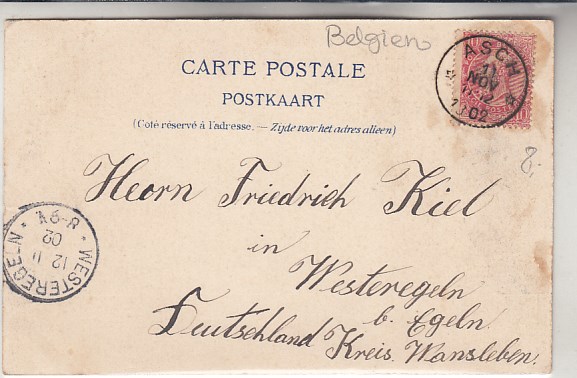 Belgien
CARTE POSTALE
POSTKAART
(Coté réservé à l'adresse. — Zijde voor het adres alleen)
ASCH
11
NOV
11-12
1902
8.
Herrn Friedrich Kiel
in
Westeregeln
b. Egeln.
Deutschland Kreis. Wansleben.
WESTEREGELN
12 11
02
8-9V.